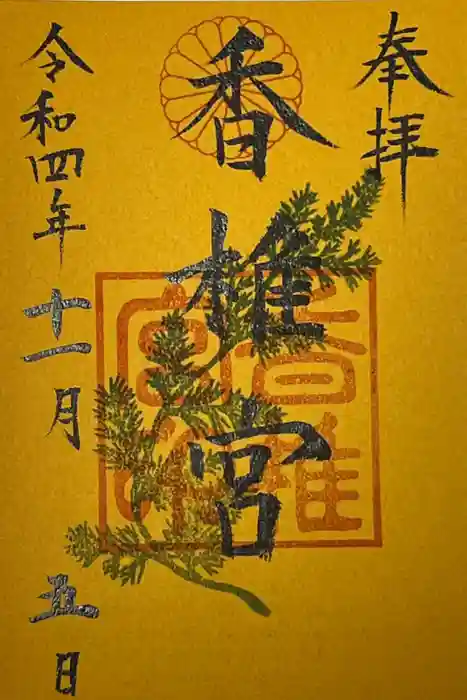 奉拝
香椎宮
令和四年十一月五日
香椎
宮印